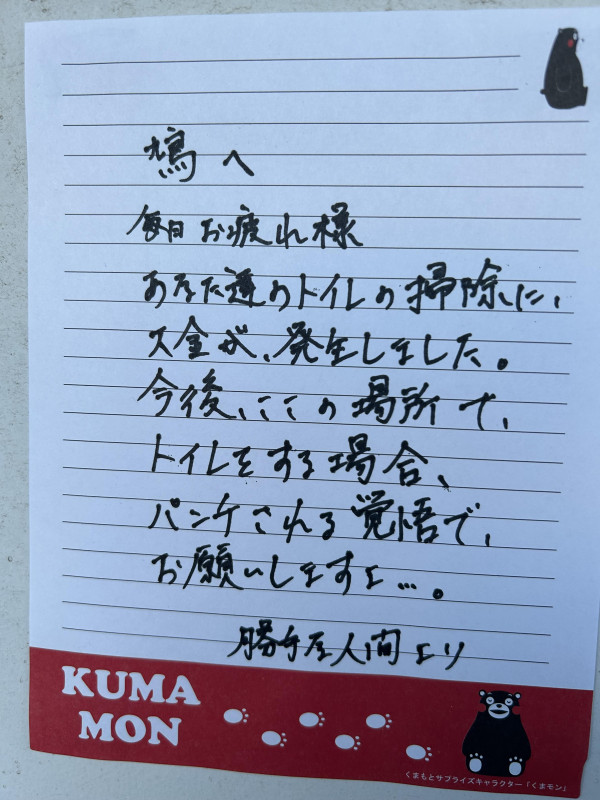 鳩へ
毎日お疲れ様
あなた達のトイレの掃除に、
大金が、発生しました。
今後、ここの場所で、
トイレをする場合、
パンチされる覚悟で、
お願いしますよ…。
勝手な人間より
KUMA
MON
くまもとサプライズキャラクター「くまモン」